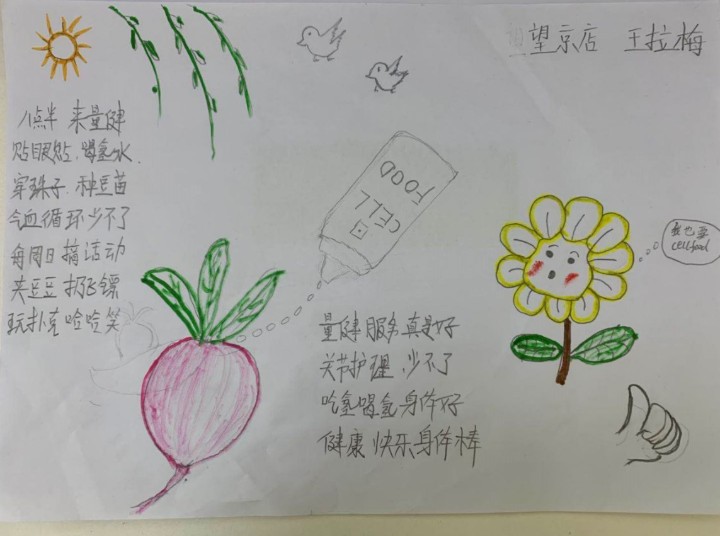 望京店 王拉梅
八点半 来量健
贴眼贴、喝氢水
穿珠子、种豆苗
气血循环少不了
每周日搞活动
夹豆豆 扔飞镖
玩扑克哈哈笑
CELL
FOOD
我也要
cellfood
量健服务真是好
关节护理 少不了
吃氢喝氢身体好
健康快乐身体棒